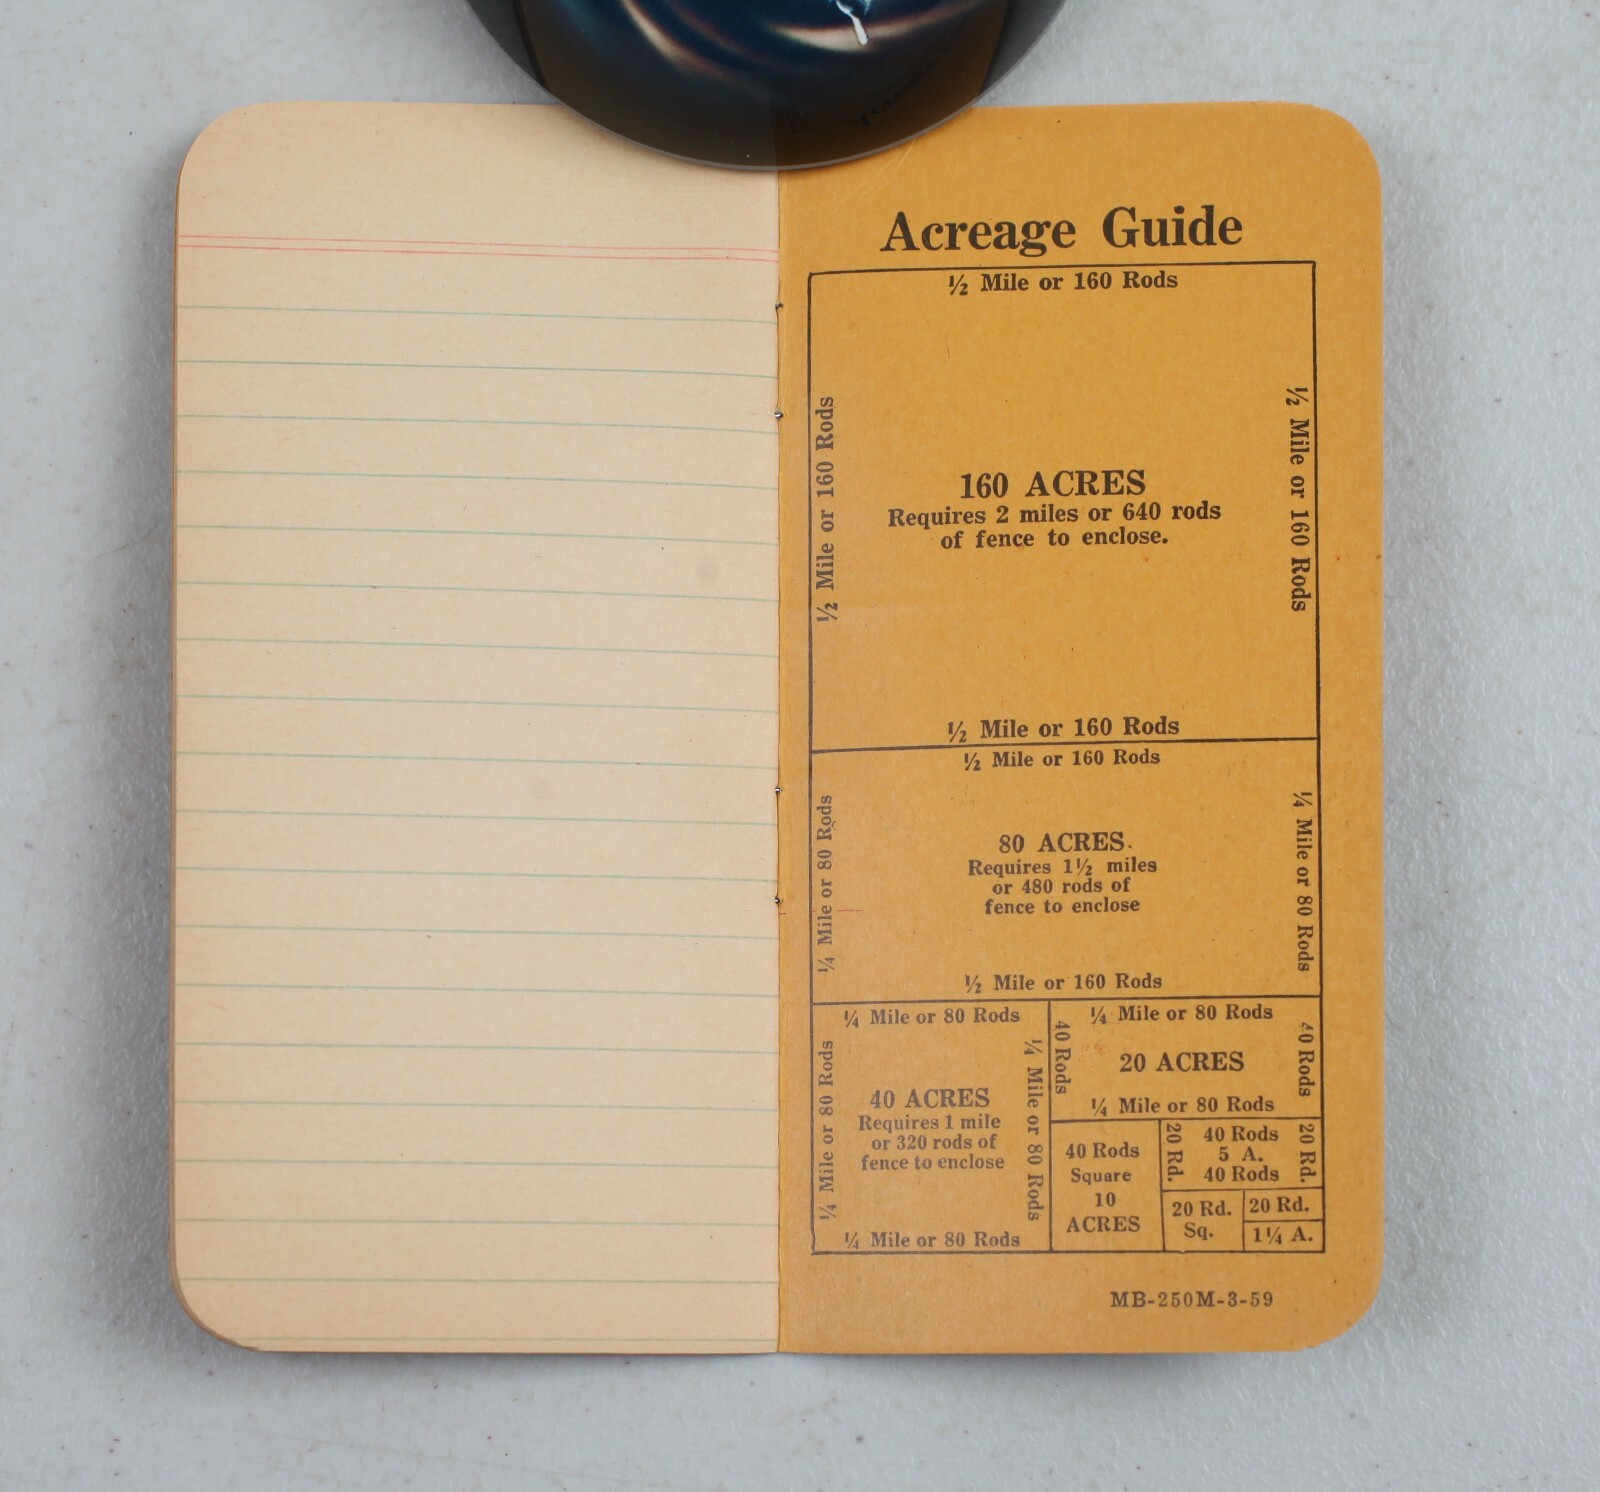 Acreage Guide
½ Mile or 160 Rods
½ Mile or 160 Rods
½ Mile or 160 Rods
160 ACRES
Requires 2 miles or 640 rods
of fence to enclose.
½ Mile or 160 Rods
½ Mile or 160 Rods
¼ Mile or 80 Rods
¼ Mile or 80 Rods
80 ACRES.
Requires 1½ miles
or 480 rods of
fence to enclose
½ Mile or 160 Rods
¼ Mile or 80 Rods
¼ Mile or 80 Rods
¼ Mile or 80 Rods
40 ACRES
Requires 1 mile
or 320 rods of
fence to enclose
¼ Mile or 80 Rods
¼ Mile or 80 Rods
40 Rods
40 Rods
20 ACRES
¼ Mile or 80 Rods
40 Rods
Square
10
ACRES
20 Rd.
40 Rods
5 A.
40 Rods
20 Rd.
20 Rd.
Sq.
20 Rd.
1¼ A.
MB-250M-3-59